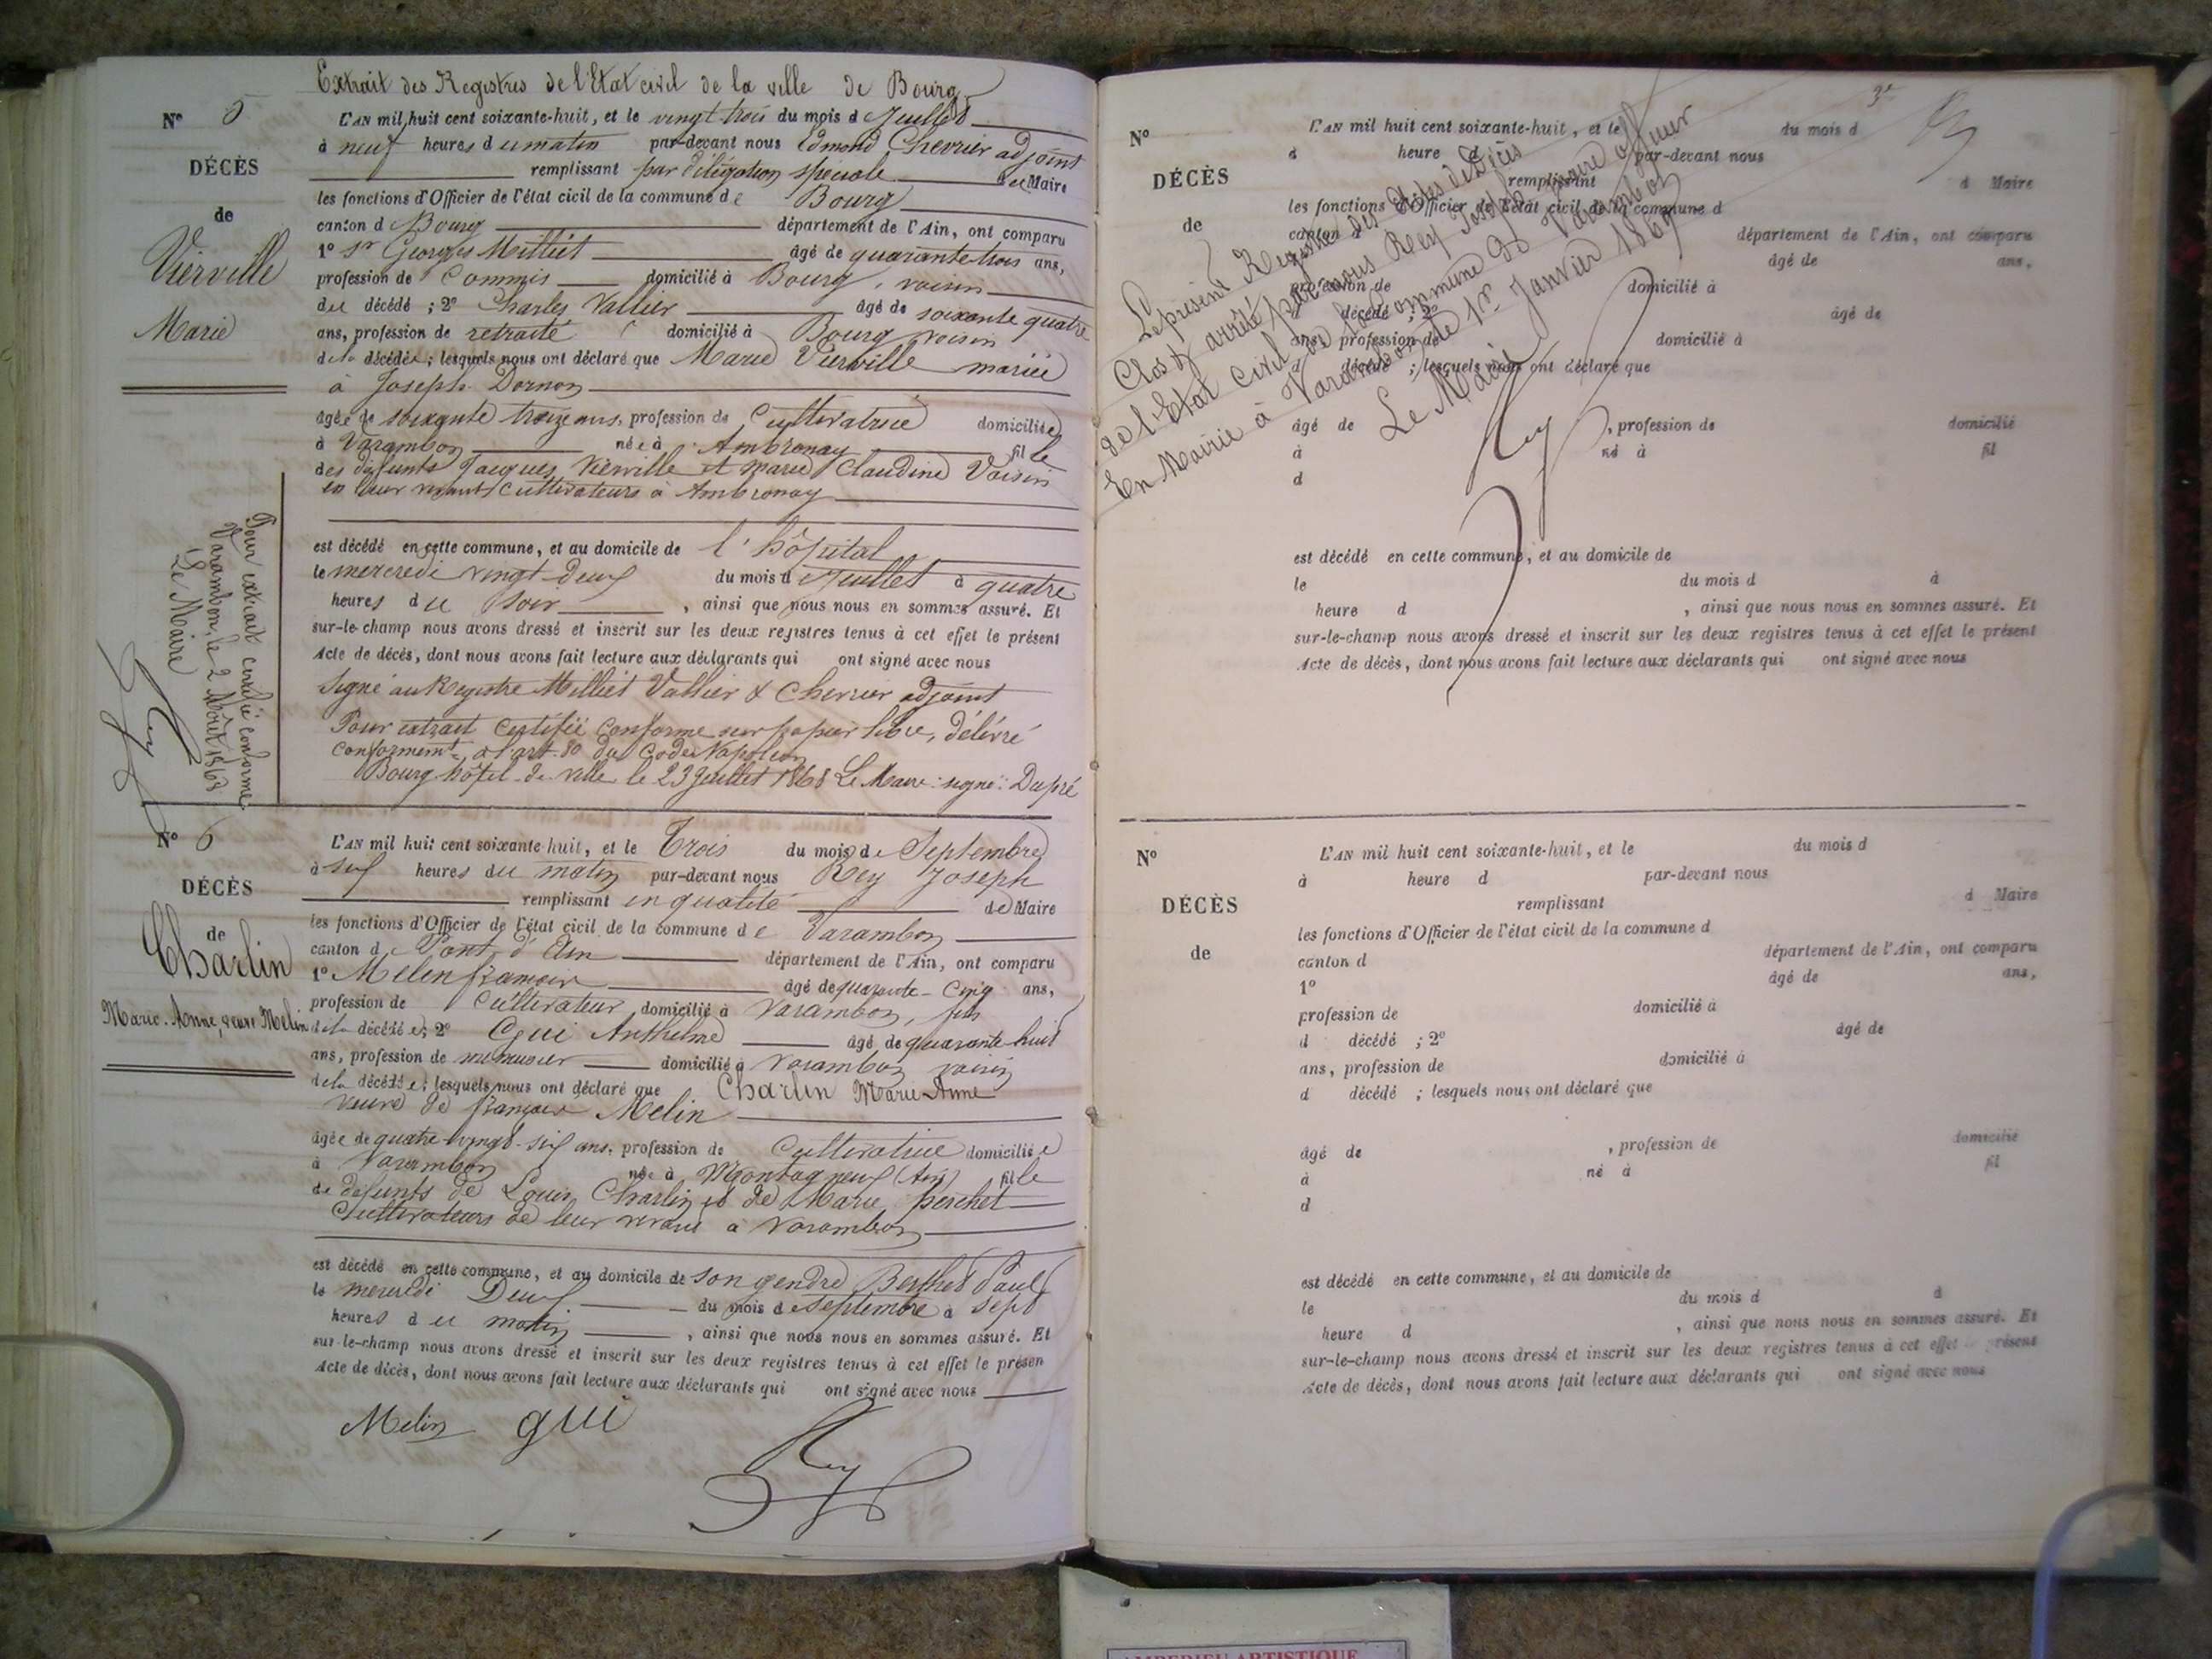 Extrait des Registres de l'Etat civil de la ville de Bourg
N° 5
DÉCÈS
de
Vierville
Marie
L'AN mil huit cent soixante-huit, et le vingt trois du mois d Juillet
à neuf heures du matin par-devant nous Edmond Chevrier adjoint
remplissant par délégation spéciale de Maire
les fonctions d'Officier de l'état civil de la commune de Bourg
canton d Bourg département de l'Ain, ont comparu
1° Sr Georges Milliet âgé de quarante trois ans,
profession de Commis domicilié à Bourg, voisin
du décédé ; 2° Charles Vallier âgé de soixante quatre
ans, profession de retraité domicilié à Bourg voisin
de la décédée ; lesquels nous ont déclaré que Marie Vierville mariée
à Joseph Dornon
âgée de soixante treize ans, profession de Cultivatrice domiciliée
à Varambon née à Ambronay fille
des défunts Jacques Vierville et Marie Claudine Voisin
en leur vivant cultivateurs à Ambronay
est décédé en cette commune, et au domicile de l'hôpital
le mercredi vingt-deux du mois d Juillet à quatre
heures du soir, ainsi que nous nous en sommes assuré. Et
sur-le-champ nous avons dressé et inscrit sur les deux registres tenus à cet effet le présent
Acte de décès, dont nous avons fait lecture aux déclarants qui ont signé avec nous
Signé au Registre Milliet Vallier & Chevrier adjoint
Pour extrait certifié conforme sur papier libre, délivré
conformemt à l'art. 80 du Code Napoléon
Bourg hôtel de ville le 23 Juillet 1868 Le Maire : signé : Dupré
Pour extrait certifié conforme
Varambon, le 2 Août 1868
Le Maire
Rey
N° 6
DÉCÈS
de
Charlin
Marie-Anne, veuve Melin
L'AN mil huit cent soixante-huit, et le Trois du mois de Septembre
à heures du matin par-devant nous Rey Joseph
remplissant en qualité de Maire
les fonctions d'Officier de l'état civil de la commune de Varambon
canton de Pont d'Ain département de l'Ain, ont comparu
1° Melin François âgé de quarante-cinq ans,
profession de Cultivateur domicilié à Varambon, fils
de la décédée; 2° Gui Anthelme âgé de quarante huit
ans, profession de menuisier domicilié à Varambon voisin
de la décédée; lesquels nous ont déclaré que Charlin Marie-Anne
veuve de François Melin
âgée de quatre-vingt-six ans, profession de Cultivatrice domiciliée
à Varambon née à Montagneux (Ain) fille
de défunts de Louis Charlin et de Marie Perchet
Cultivateurs de leur vivant à Varambon
est décédé en cette commune, et au domicile de son gendre Berthet Paul
le mercredi Deux du mois de septembre à sept
heures du matin, ainsi que nous nous en sommes assuré. Et
sur-le-champ nous avons dressé et inscrit sur les deux registres tenus à cet effet le présen
Acte de décès, dont nous avons fait lecture aux déclarants qui ont signé avec nous
Melin gui
Rey
3e
N°
DÉCÈS
de
L'AN mil huit cent soixante-huit, et le du mois d
à heure d par-devant nous
remplissant d Maire
les fonctions d'Officier de l'état civil de la commune d
canton d département de l'Ain, ont comparu
âgé de ans,
profession de domicilié à
d décédé ; 2° âgé de
ans, profession de domicilié à
d décédé ; lesquels nous ont déclaré que
âgé de , profession de domicilié
à né à fil
d
est décédé en cette commune, et au domicile de
le du mois d à
heure d , ainsi que nous nous en sommes assuré. Et
sur-le-champ nous avons dressé et inscrit sur les deux registres tenus à cet effet le présent
Acte de décès, dont nous avons fait lecture aux déclarants qui ont signé avec nous
Le présent Registre des Actes de Décès
Clos & arrêté par nous Rey Joseph Maire officier
de l'Etat civil de la Commune de Varambon
En Mairie à Varambon le 1er Janvier 1869
Le Maire
Rey
N°
DÉCÈS
de
L'AN mil huit cent soixante-huit, et le du mois d
à heure d par-devant nous
remplissant d Maire
les fonctions d'Officier de l'état civil de la commune d
canton d département de l'Ain, ont comparu
1° âgé de ans,
profession de domicilié à
d décédé ; 2° âgé de
ans, profession de domicilié à
d décédé ; lesquels nous ont déclaré que
âgé de , profession de domicilié
à né à fil
d
est décédé en cette commune, et au domicile de
le du mois d à
heure d , ainsi que nous nous en sommes assuré. Et
sur-le-champ nous avons dressé et inscrit sur les deux registres tenus à cet effet présent
Acte de décès, dont nous avons fait lecture aux déclarants qui ont signé avec nous
ARTISTIQUE